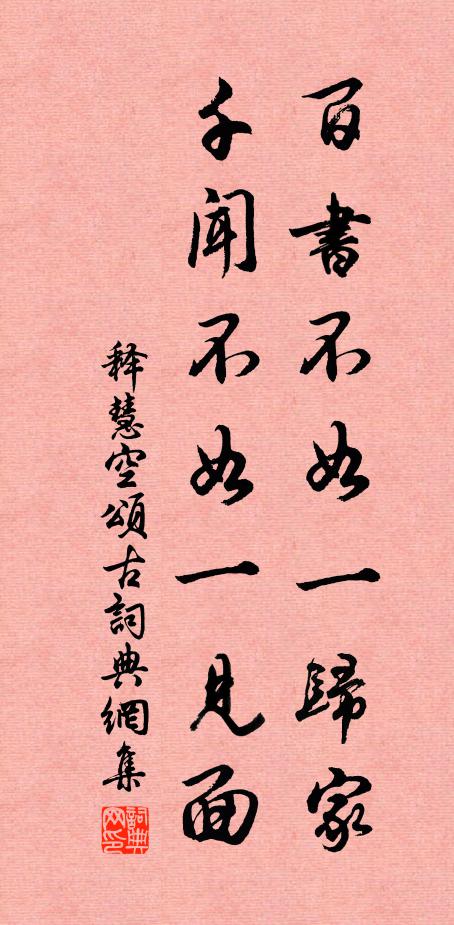 百書不如一歸家
千聞不如一見面
释慧空頌古詞典網集
詞典网印